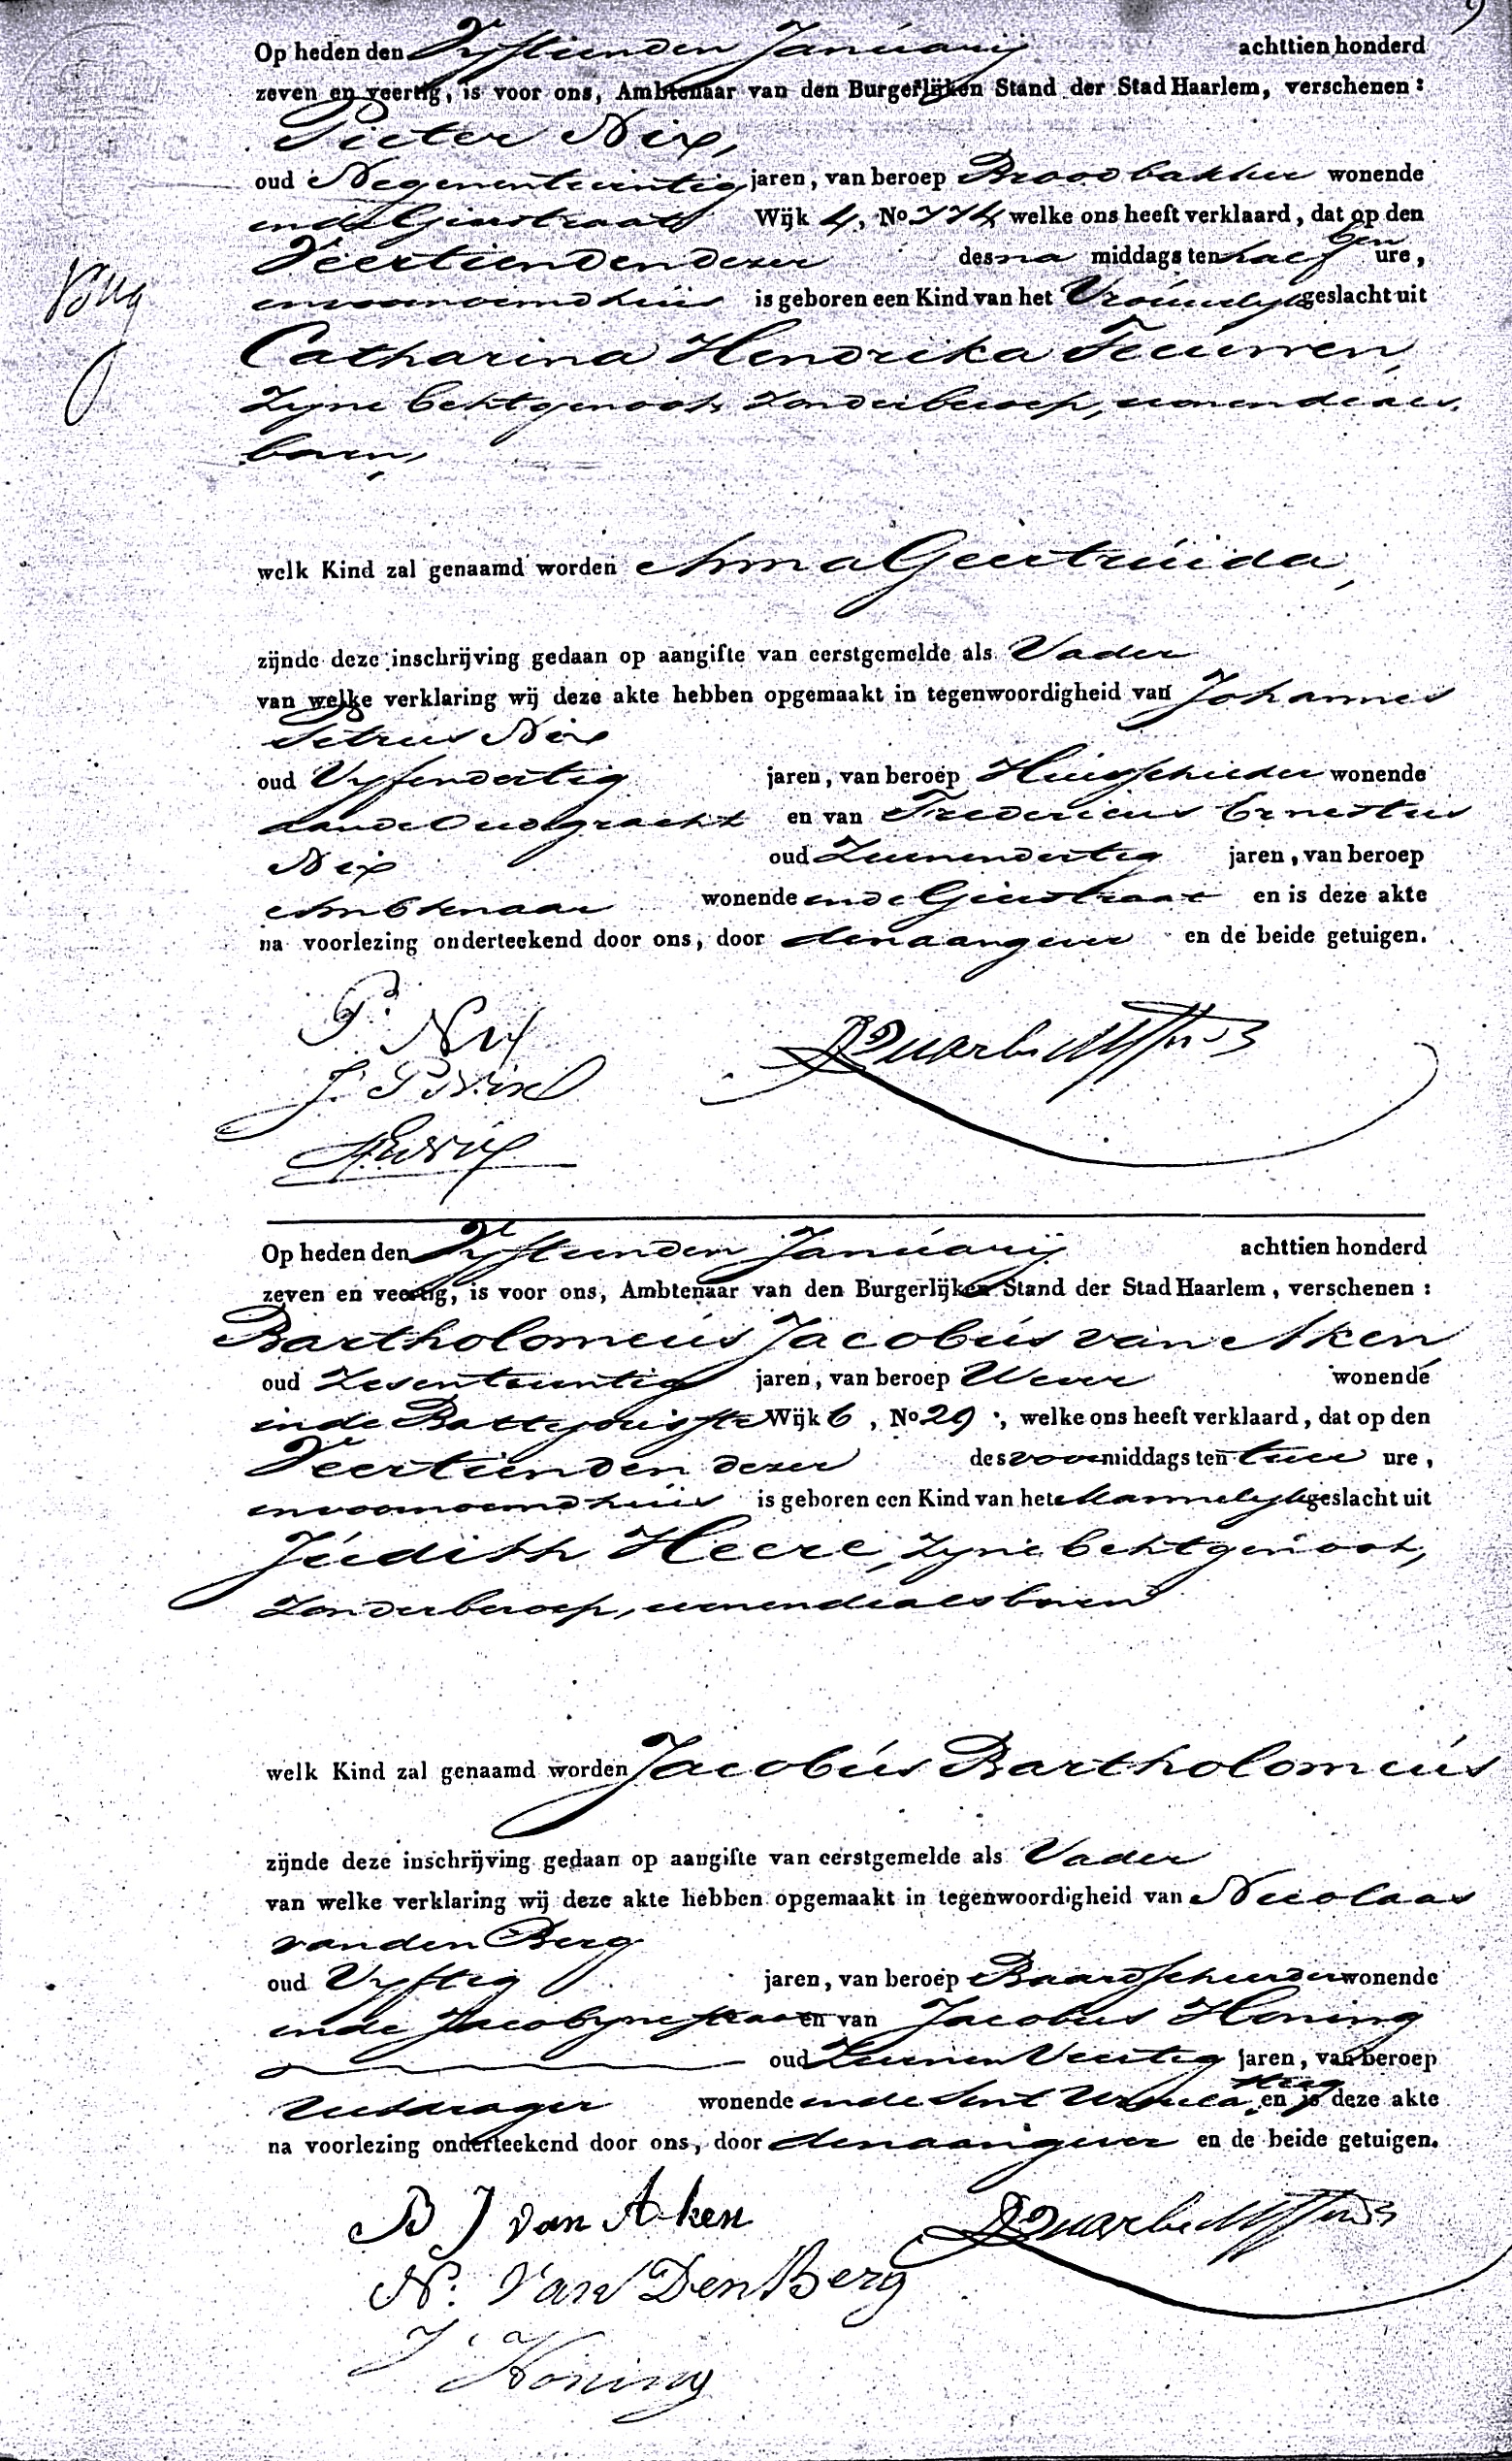 9
Op heden den Vyftienden Januarij achttien honderd
zeven en veertig, is voor ons, Ambtenaar van den Burgerlijken Stand der Stad Haarlem, verschenen:
Pieter Nix,
oud Negenentwintig jaren, van beroep Broodbakker wonende
in de Gierstraat Wijk 4, No 774 welke ons heeft verklaard, dat op den
Veertienden dezer des na middags ten half een ure,
in voornoemd huis is geboren een Kind van het Vrouwelyk geslacht uit
Catharina Hendrika Teeuwen,
Zyne Echtgenoot, Zonder beroep, wonende als
boven,
welk Kind zal genaamd worden Anna Geertruida,
zijnde deze inschrijving gedaan op aangifte van eerstgemelde als Vader
van welke verklaring wij deze akte hebben opgemaakt in tegenwoordigheid van Johannes
Petrus Nix
oud Vyfendertig jaren, van beroep Huisschilder wonende
aan de Oudegracht en van Fredericus Ernestus
Nix oud Tweeendertig jaren, van beroep
Ambtenaar wonende in de Gierstraat en is deze akte
na voorlezing onderteekend door ons, door den aangever en de beide getuigen.
P. Nix
J. P. Nix
F E Nix
Op heden den Vyftienden Januarij achttien honderd
zeven en veertig, is voor ons, Ambtenaar van den Burgerlijken Stand der Stad Haarlem, verschenen:
Bartholomeus Jacobus van Aken
oud Zesentwintig jaren, van beroep Wever wonende
in de Wijk 6, No 29, welke ons heeft verklaard, dat op den
Veertienden dezer des voormiddags ten twee ure,
in voornoemd huis is geboren een Kind van het Mannelyk geslacht uit
Judith Heere, Zyne Echtgenoot,
Zonder beroep, wonende als boven
welk Kind zal genaamd worden Jacobus Bartholomeus
zijnde deze inschrijving gedaan op aangifte van eerstgemelde als Vader
van welke verklaring wij deze akte hebben opgemaakt in tegenwoordigheid van Nicolaas
van den Berg
oud Vyftig jaren, van beroep Baardscheerder wonende
in de Jacobynestraat en van Jacobus Koning
oud Tweeen Veertig jaren, van beroep
Uitdrager wonende in de Sint Ursula steeg en is deze akte
na voorlezing onderteekend door ons, door den aangever en de beide getuigen.
B J van Aken
N. Van Den Berg
J. Koning